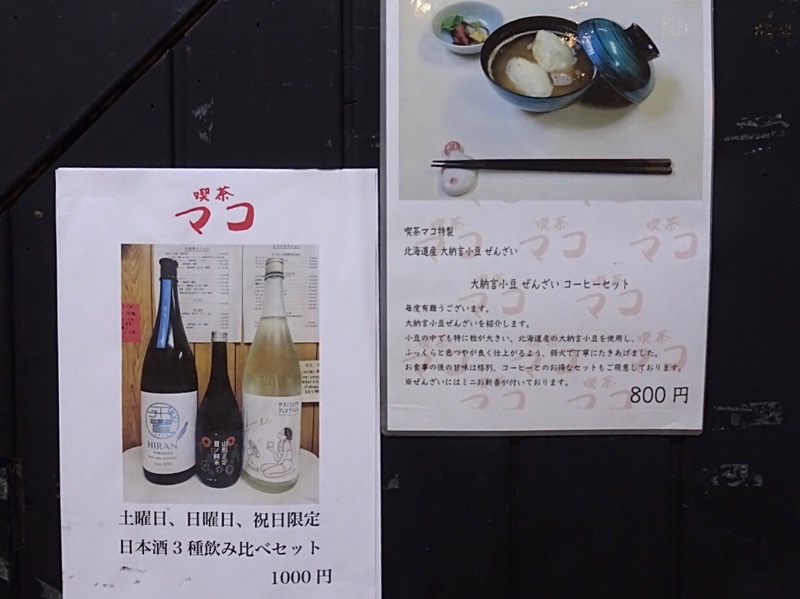 喫茶
マコ
HIRAN
山形正宗
夏ノ純米
土曜日、日曜日、祝日限定
日本酒3種飲み比べセット
1000円
喫茶マコ特製
北海道産 大納言小豆 ぜんざい
大納言小豆 ぜんざい コーヒーセット
毎度有難うございます。
大納言小豆ぜんざいを紹介します。
小豆の中でも特に粒が大きい、北海道産の大納言小豆を使用し、
ふっくらと色つやが良く仕上がるよう、弱火で丁寧にたきあげました。
お食事の後の甘味は格別、コーヒーとのお得なセットもご用意しております。
※ぜんざいにはミニお新香が付いております。
800円
喫茶
マコ
喫茶
マコ
喫茶
マコ